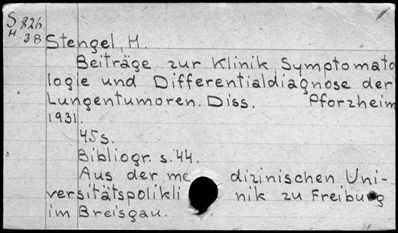 S 826
H. 3B
Stengel, H.
Beiträge zur Klinik Symptomato
logie und Differentialdiagnose der
Lungentumoren. Diss. Pforzheim
1931.
45s.
Bibliogr. s. 44.
Aus der me dizinischen Uni-
versitätspolikli nik zu Freiburg
im Breisgau.